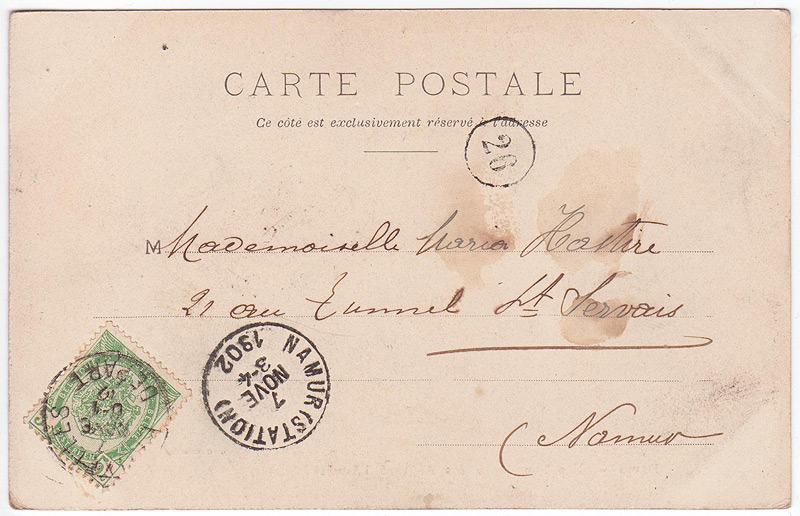 CARTE POSTALE
Ce côté est exclusivement réservé à l'adresse
26
M Mademoiselle Maria
21 au Tunnel St Servais
NAMUR (STATION)
7
NOVE
3-4
1902
DEPART
(Namur